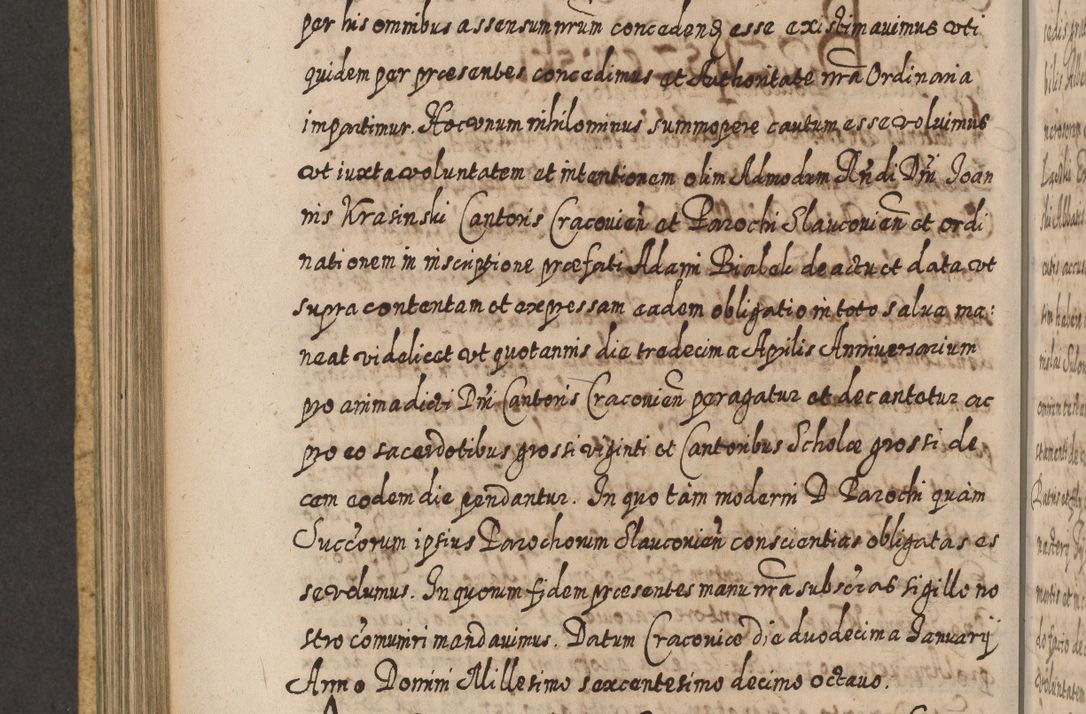 per his omnibus assensum nrum concedend esse existimauimus vti
quidem per præsentes concedimus et Authoritate nra Ordinaria
impertimur. Hoc vnum nihilominus summopere cautum esse voluimus
vt iuxta voluntatem et intentionem olim Admodum Rndi Dni Joan
nis Krasinski Cantoris Cracovien et Parochi Slaucovien et ordi
nationem in inscriptione præfati Adami Bialek de actu et data vt
supra contentam et expressam eadem obligatio in toto salua ma:
neat videlicet vt quotannis die tredecima Aprilis Anniversarium
pro anima dicti Dni Cantoris Cracovien peragatur et decantetur ac
pro eo sacerdotibus grossi viginti et Cantoribus Scholæ grossi de
cem eodem die pendantur. In quo tam moderni D Parochi quàm
Succorum ipsius Parochorum Slaucovien conscientias obligatas es
se volumus. In quorum fidem præsentes manu nra subscras sigillo no
stro comuniri mandauimus. Datum Cracoviæ die duodecima Januarij
Anno Domini Millesimo sexcentesimo decimo octauo.